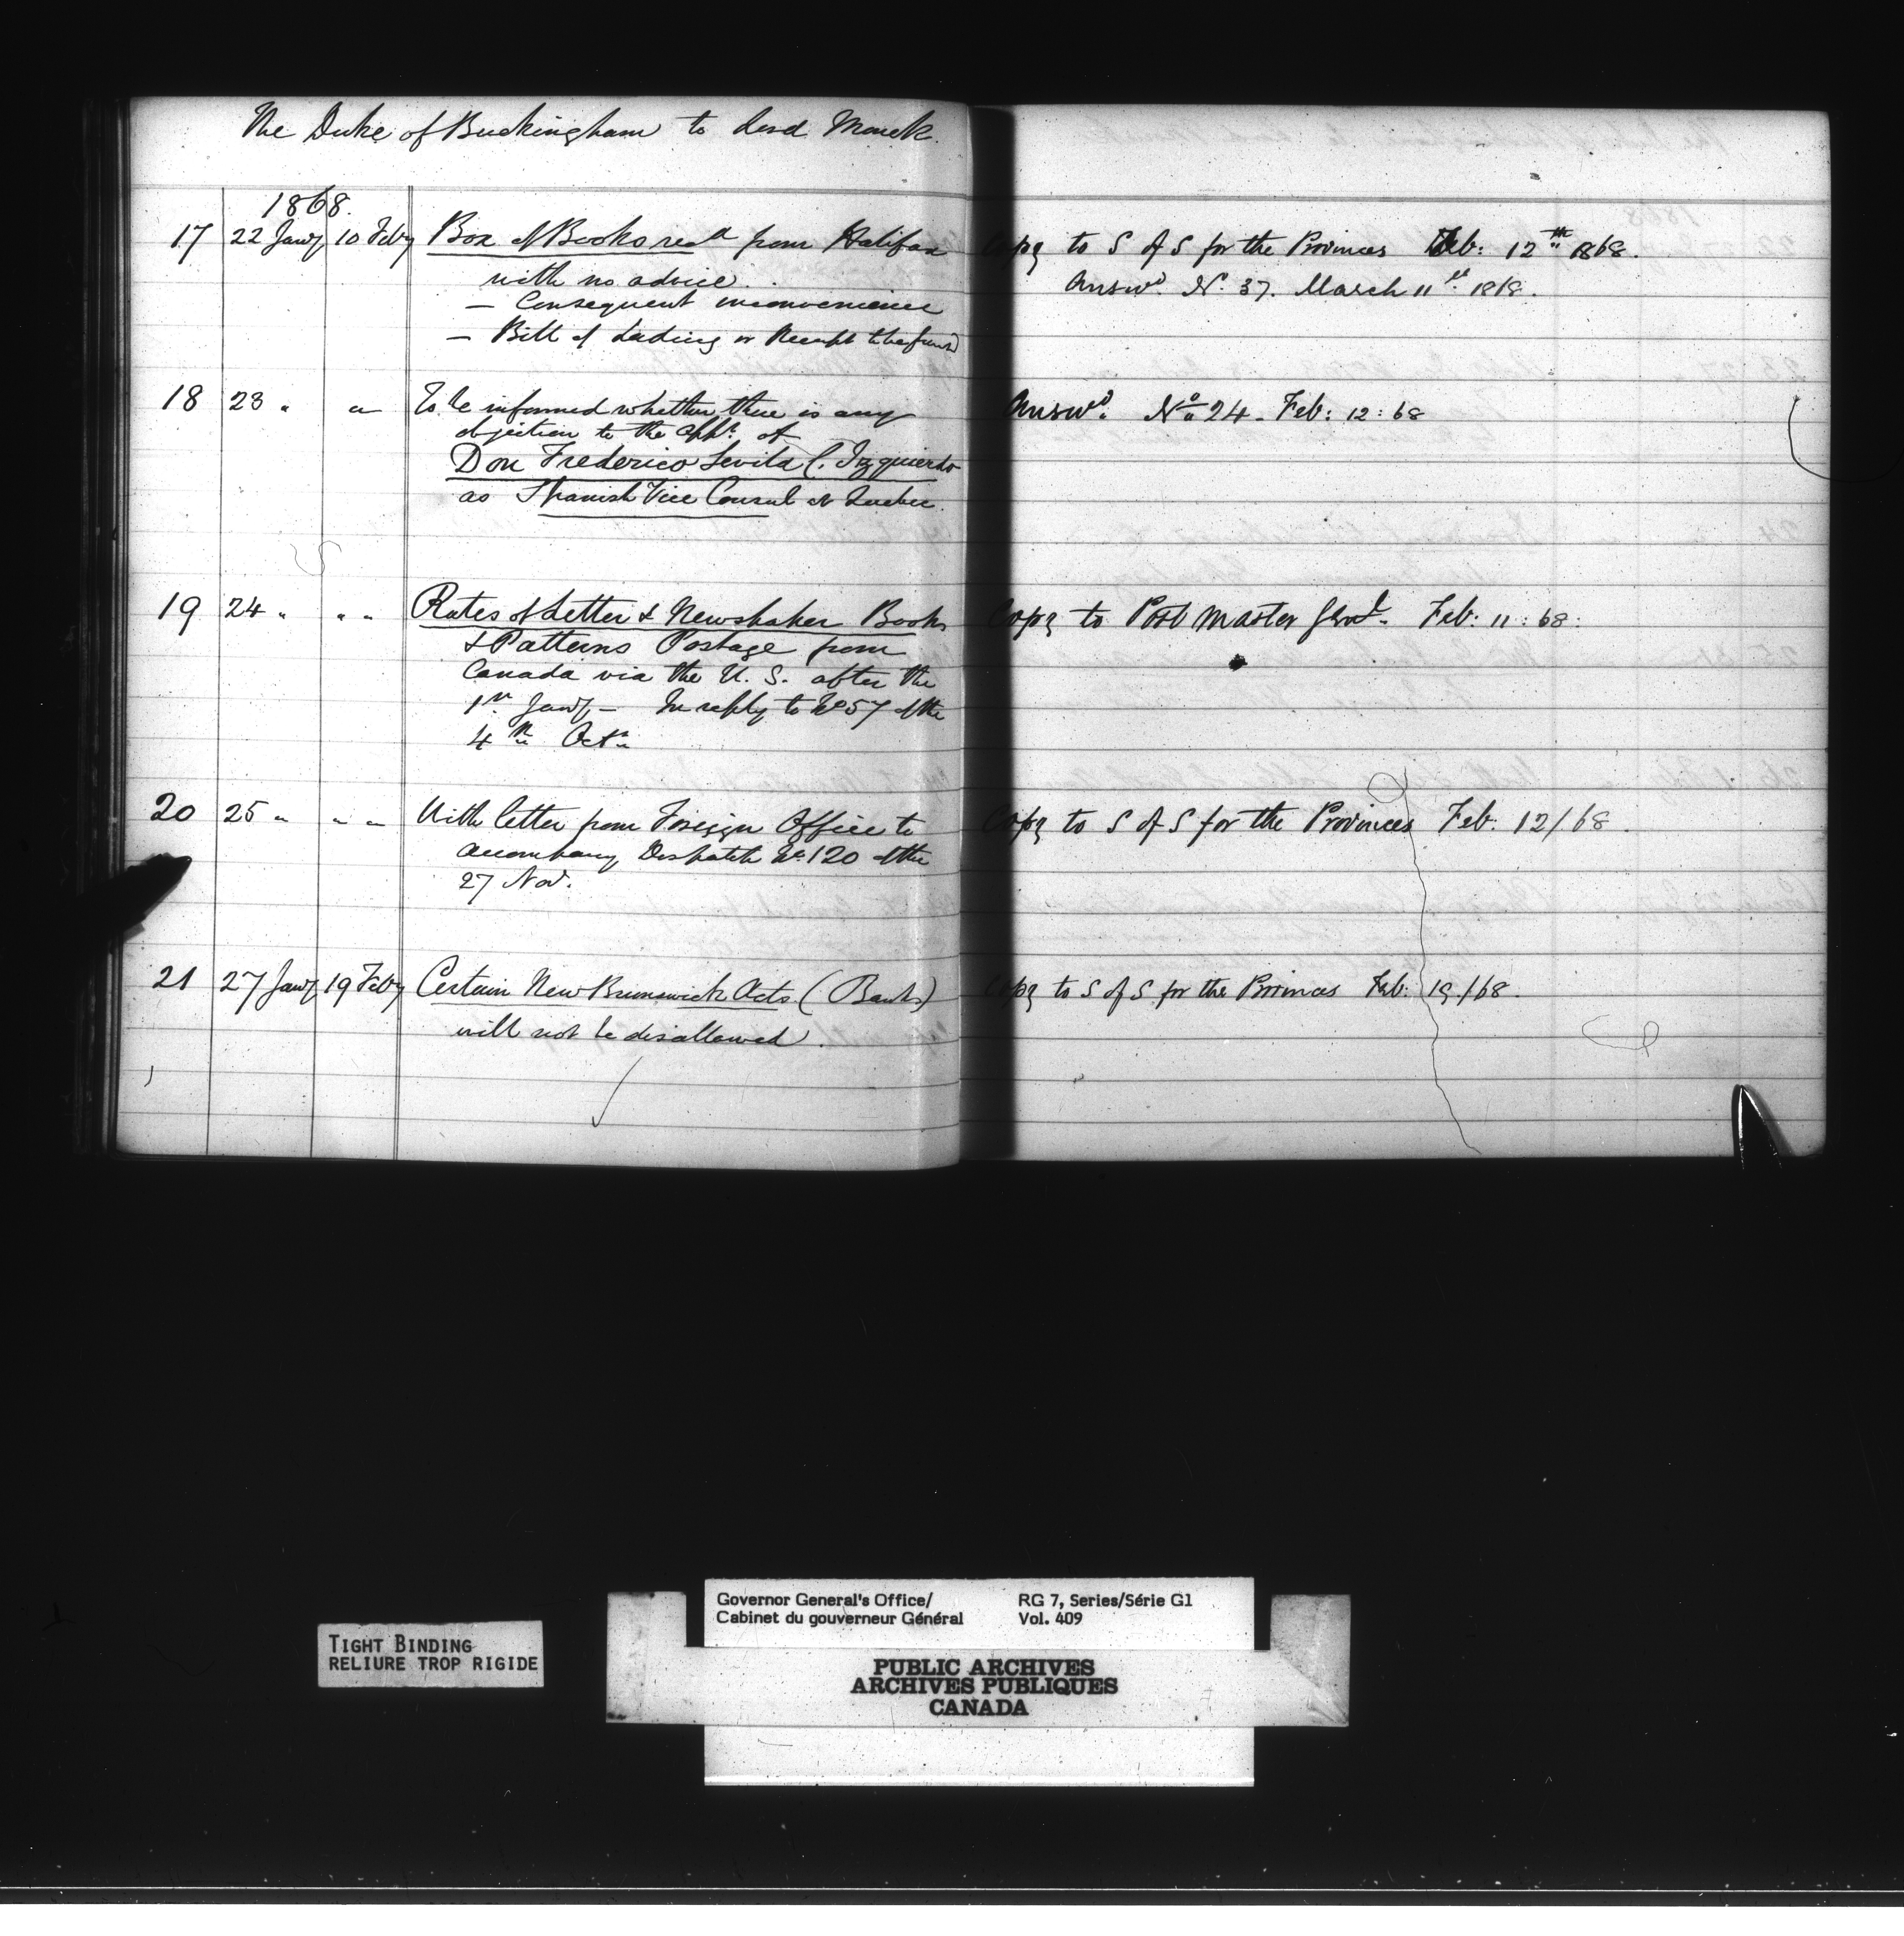 The Duke of Buckingham to Lord Monck.
1868.
17 22 Jany 10 Feby Box of Books recd from Halifax
with no advice.
— Consequent inconvenience
— Bill of Lading or Receipt to be
Copy to S of S for the Provinces Feb: 12th 1868.
Answd. No. 37. March 11th 1868.
18 23 " " To be informed whether there is any
objection to the appt. of
Don Frederico Levita C. Izquierdo
as Spanish Vice Consul at Quebec.
Answd. No 24 - Feb: 12: 68
19 24 " " " Rates of Letter & Newspaper Books
& Patterns Postage from
Canada via the U. S. after the
1st Jany, — In reply to No 57 of the
4th Octr
Copy to Post Master Genl. Feb: 11: 68:
20 25 " " " With letter from Foreign Office to
accompany Despatch No. 120 of the
27 Nov.
Copy to S of S for the Provinces Feb: 12/68.
21 27 Jany 19 Feby Certain New Brunswick Acts (Banks)
will not be disallowed.
Copy to S of S for the Provinces Feb: 19/68.
TIGHT BINDING
RELIURE TROP RIGIDE
Governor General's Office/ RG 7, Series/Série G1
Cabinet du gouverneur Général Vol. 409
PUBLIC ARCHIVES
ARCHIVES PUBLIQUES
CANADA